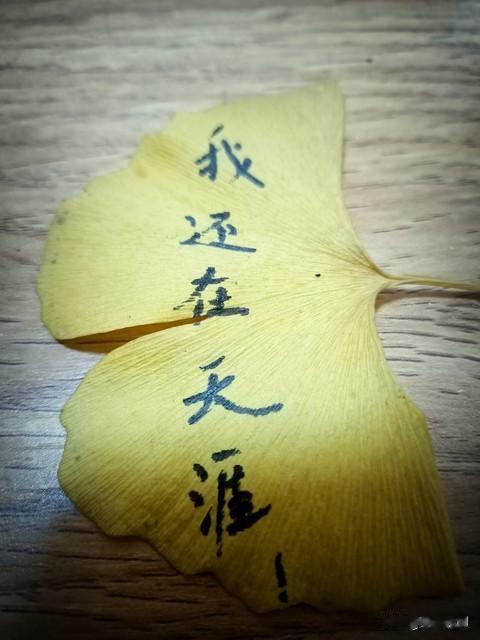 我还在天涯!